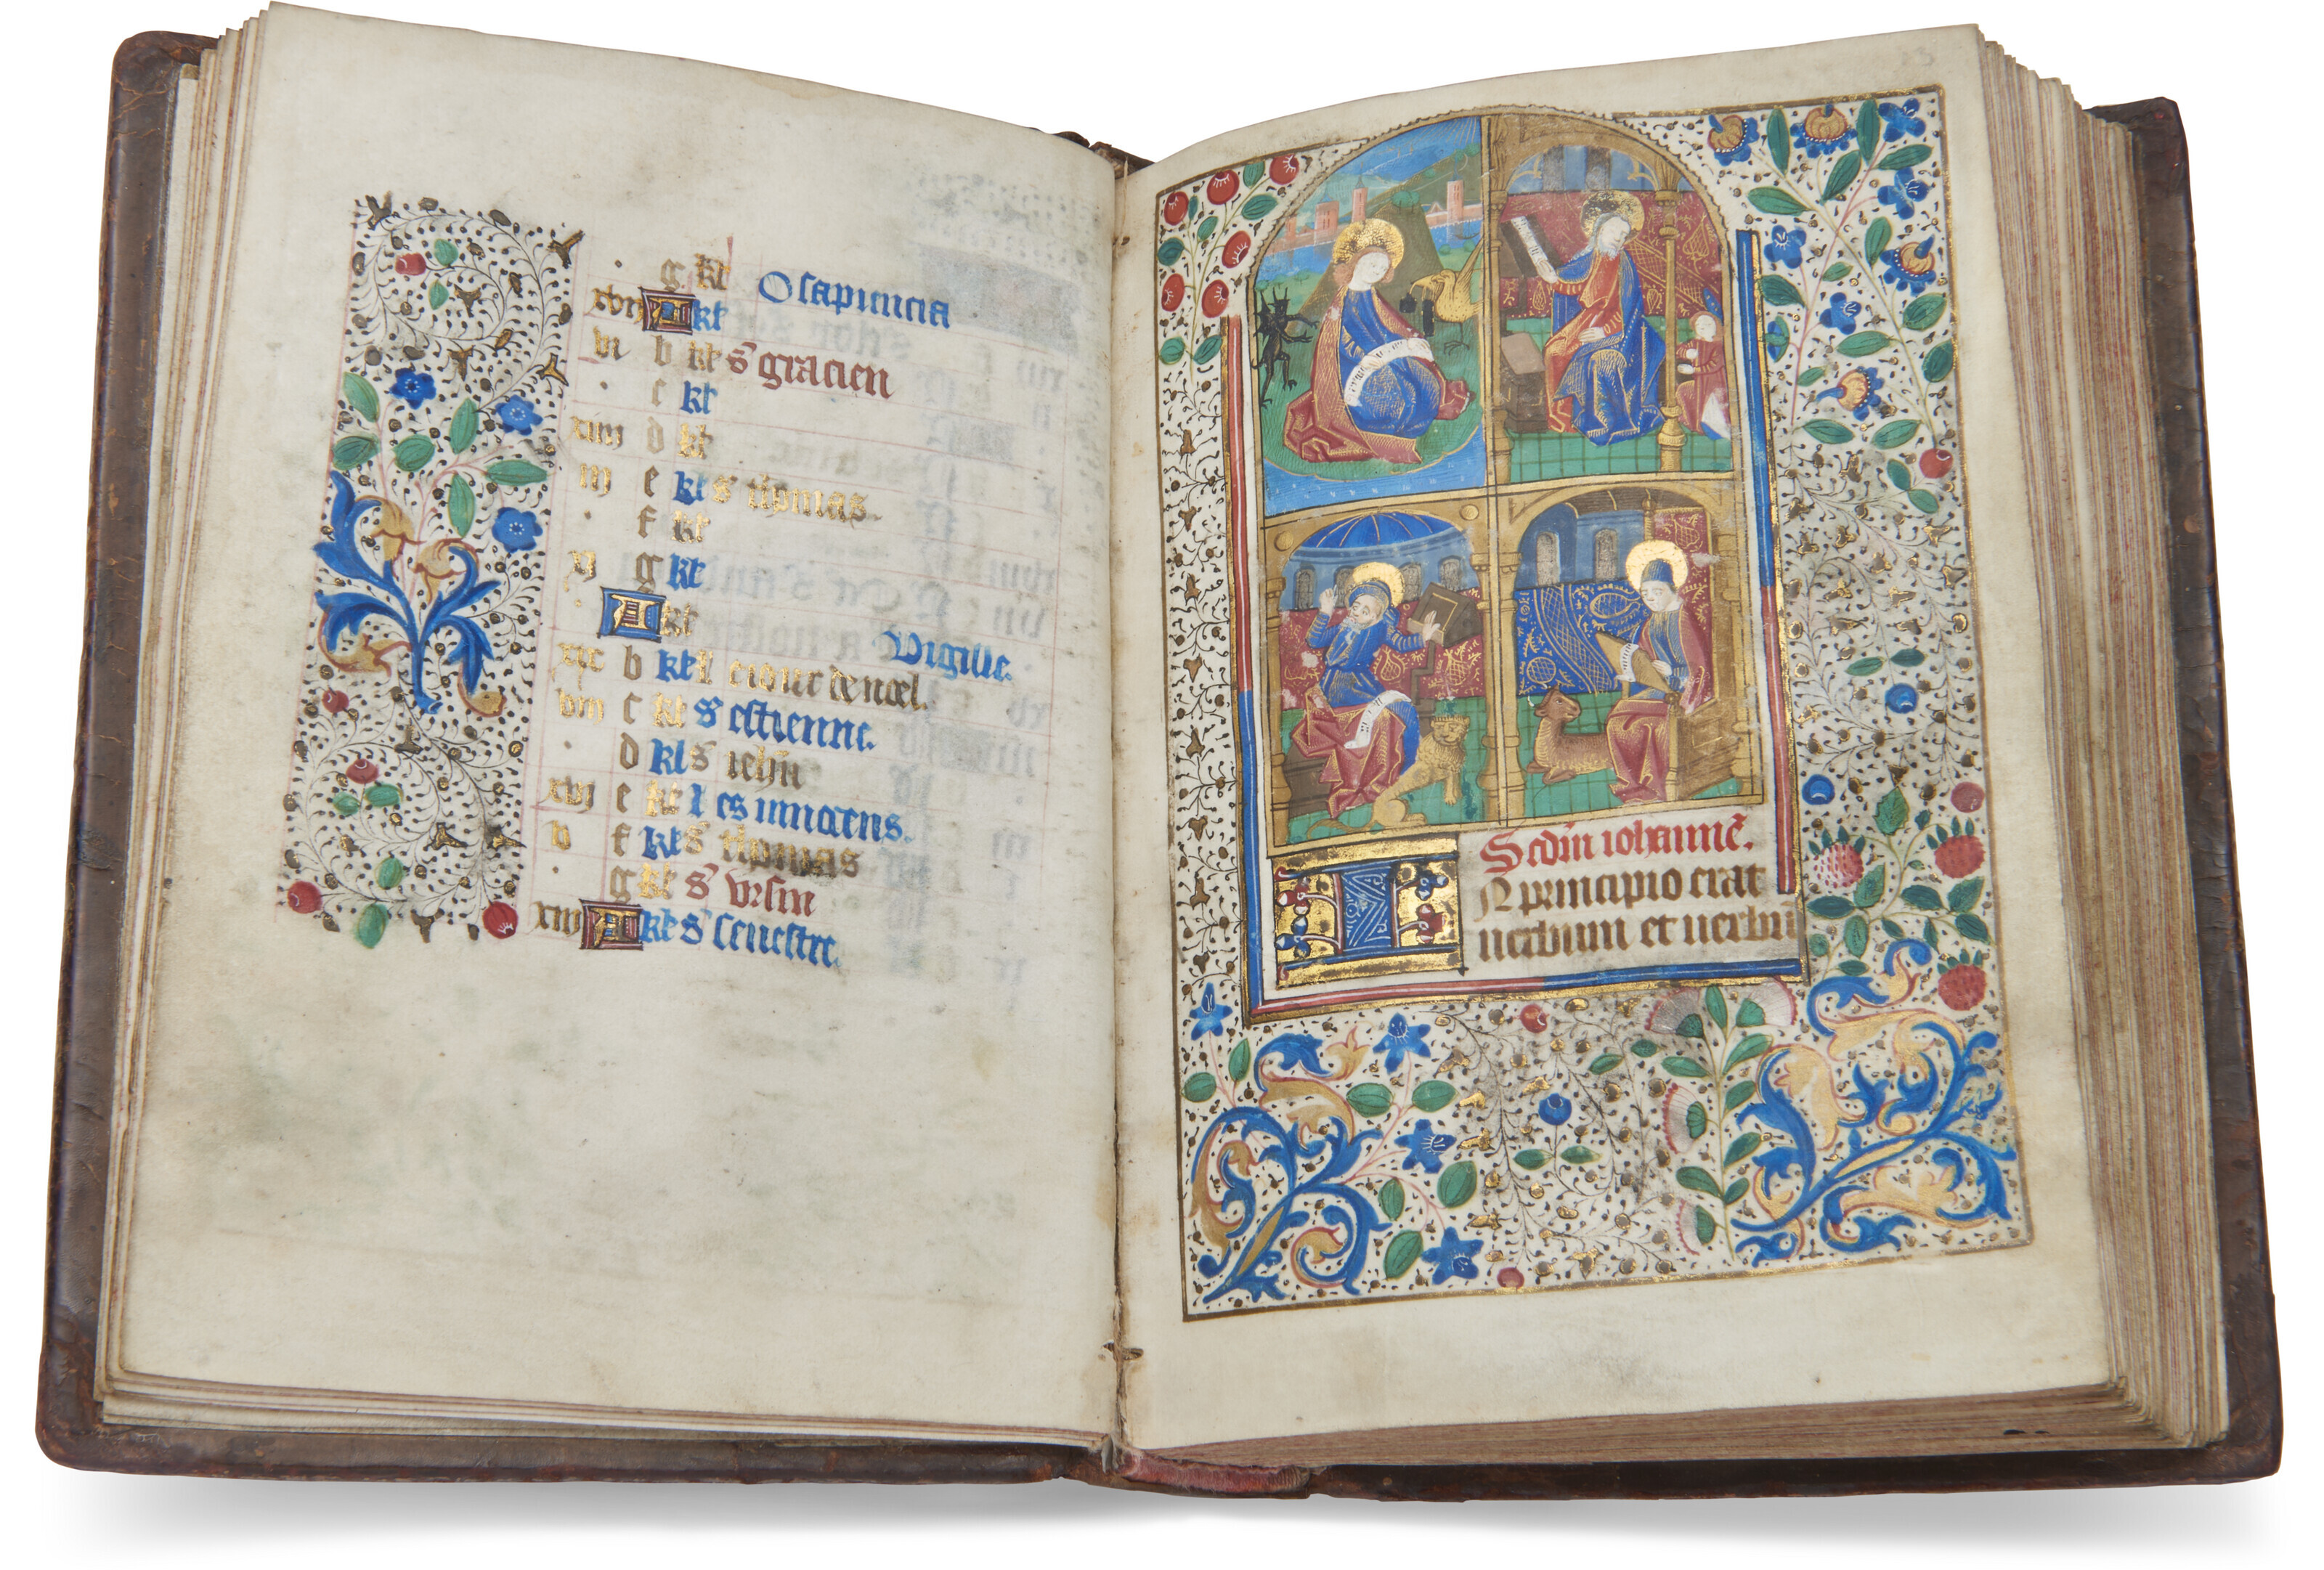 g kl O sapiencia
xvii A kl
vi b kl s gracien
c kl
xiiii d kl
iii e kl s thomas.
f kl
xi g kl
A kl Vigille.
xix b kl l e iour de noel.
viii c kl s estienne.
d kl s iehan
xvi e kl l es innocens.
v f kl s thomas
g kl s ursin
xiii A kl s seuestre.
13
Scdm iohanne.
IN principio erat
uerbum et uerbu